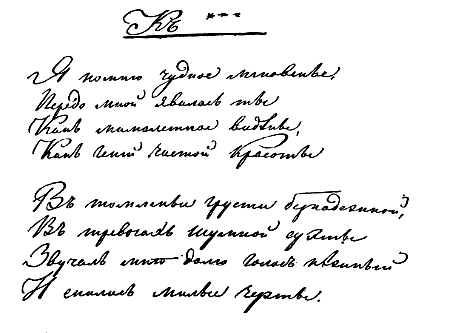 Къ ***
Я помню чудное мгновенье,
Передо мной явилась ты
Какъ мимолетное видѣнье,
Какъ геній чистой красоты
Въ томленьи грусти безнадежной,
Въ тревогахъ шумной суеты
Звучалъ мнѣ долго голосъ нѣжный
И снились милые черты.